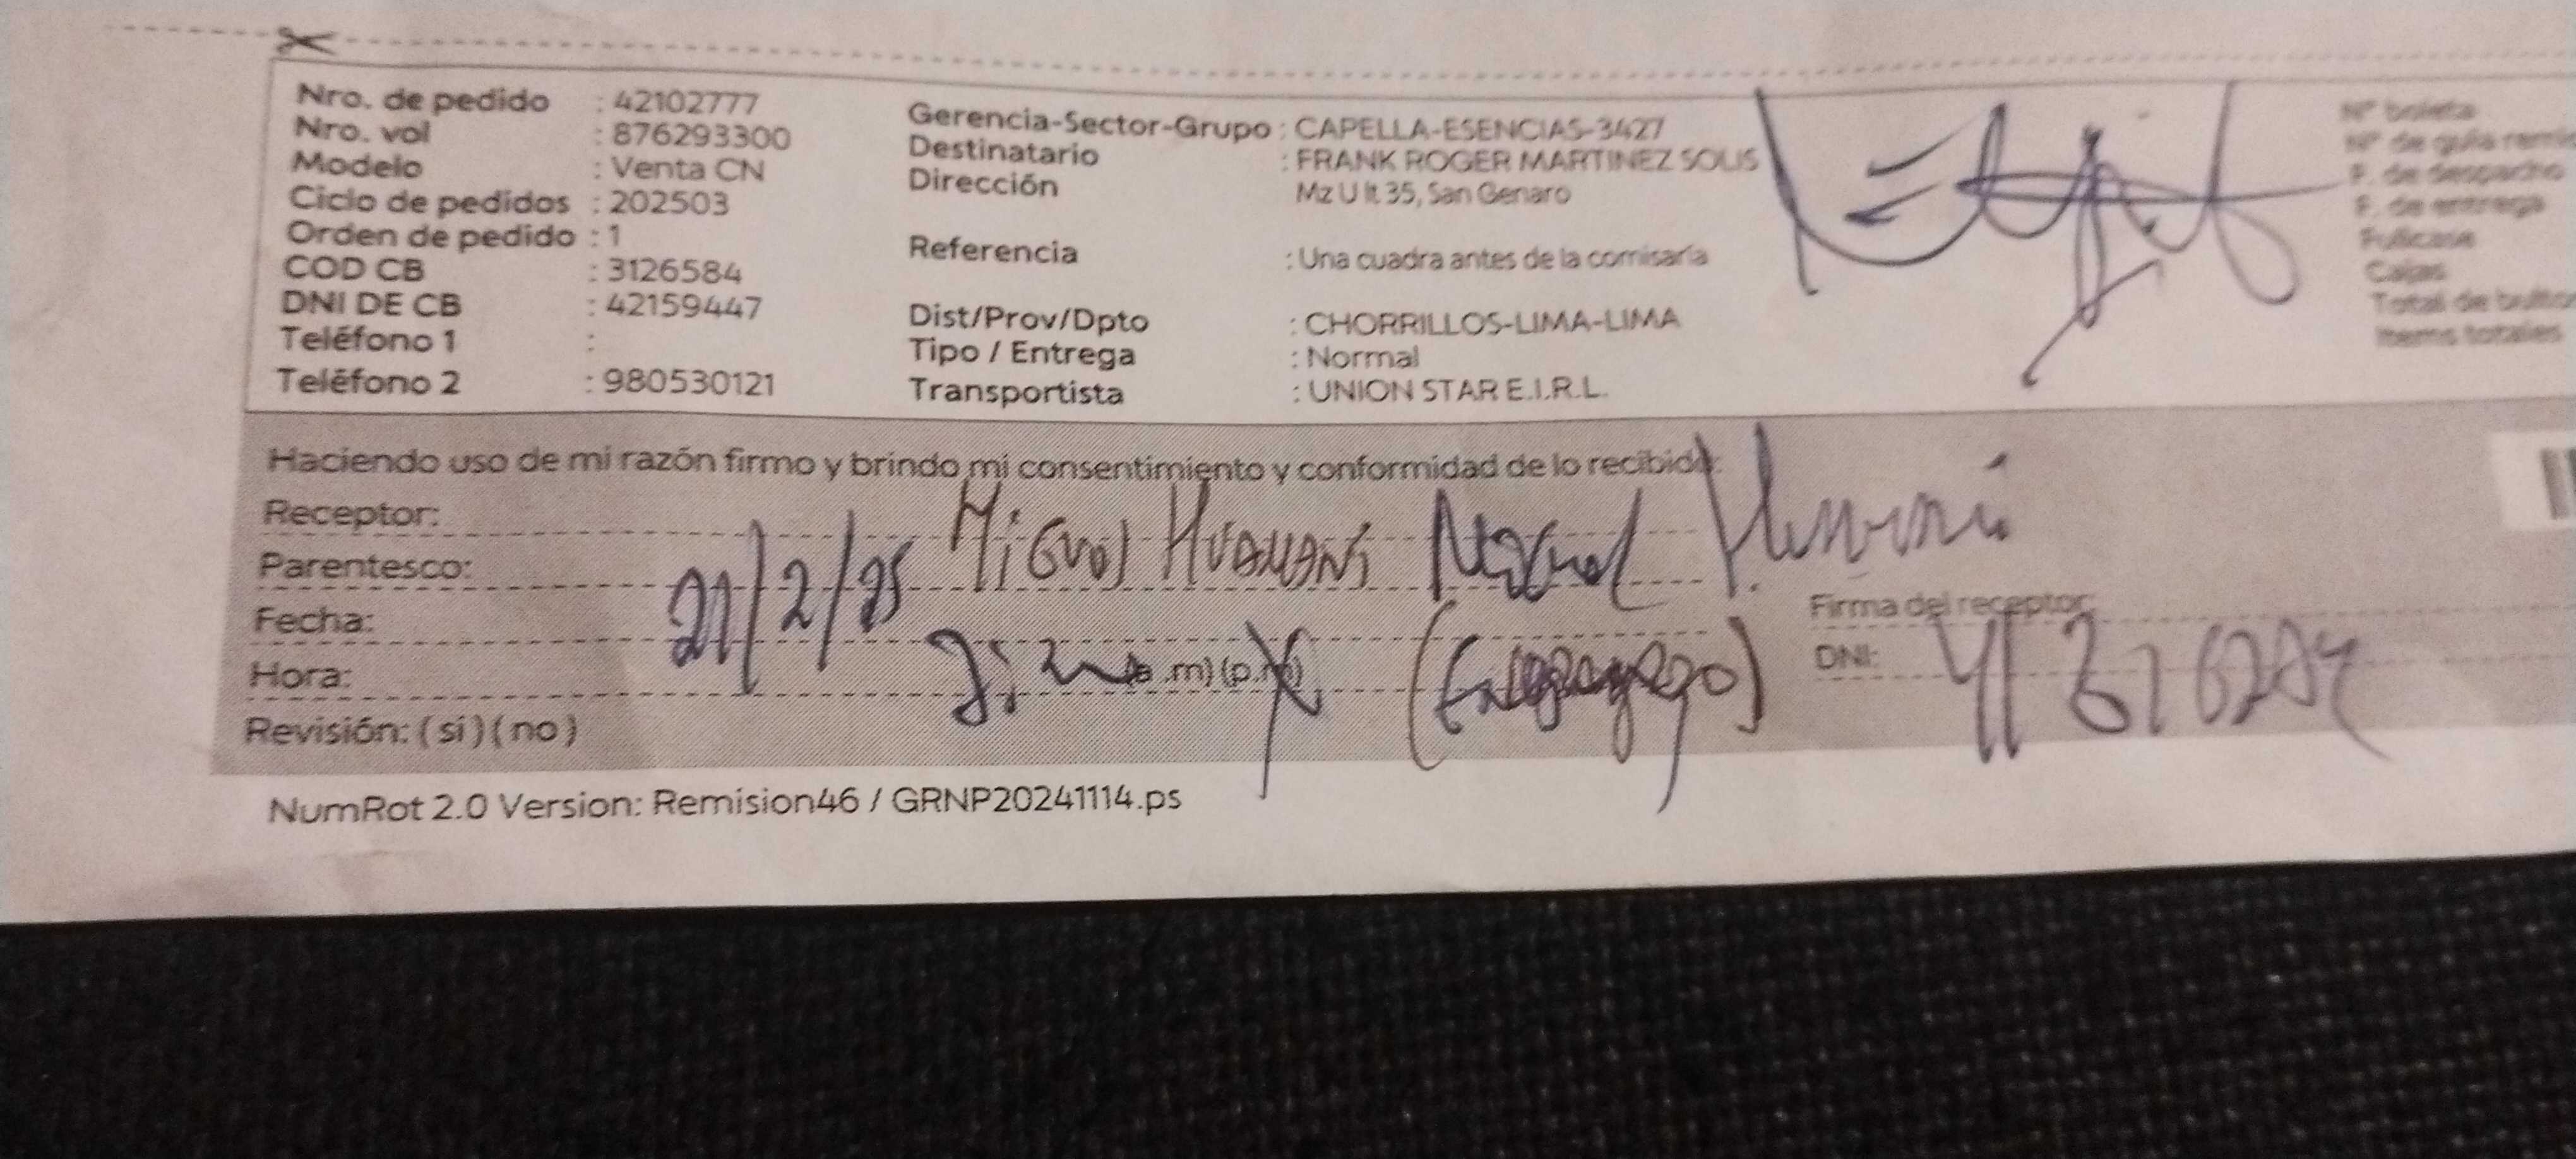 Nro. de pedido : 42102777
Nro. vol : 876293300
Modelo : Venta CN
Ciclo de pedidos : 202503
Orden de pedido : 1
COD CB : 3126584
DNI DE CB : 42159447
Teléfono 1 :
Teléfono 2 : 980530121
Gerencia-Sector-Grupo : CAPELLA-ESENCIAS-3427
Destinatario : FRANK ROGER MARTINEZ SOLIS
Dirección Mz U lt 35, San Genaro
Referencia : Una cuadra antes de la comisaría
Dist/Prov/Dpto : CHORRILLOS-LIMA-LIMA
Tipo / Entrega : Normal
Transportista : UNION STAR E.I.R.L.
Nº boleta
Nº de guía remi
F. de despacho
F. de entrega
Fullcase
Cajas
Total de bulto
Items totales
Haciendo uso de mi razón firmo y brindo mi consentimiento y conformidad de lo recibido:
Receptor: Miguel Huamani
Parentesco:
Fecha: 21/2/25
Hora: (a.m) (p.m)
Revisión: (si) (no)
Firma del receptor:
DNI:
NumRot 2.0 Version: Remision46 / GRNP20241114.ps